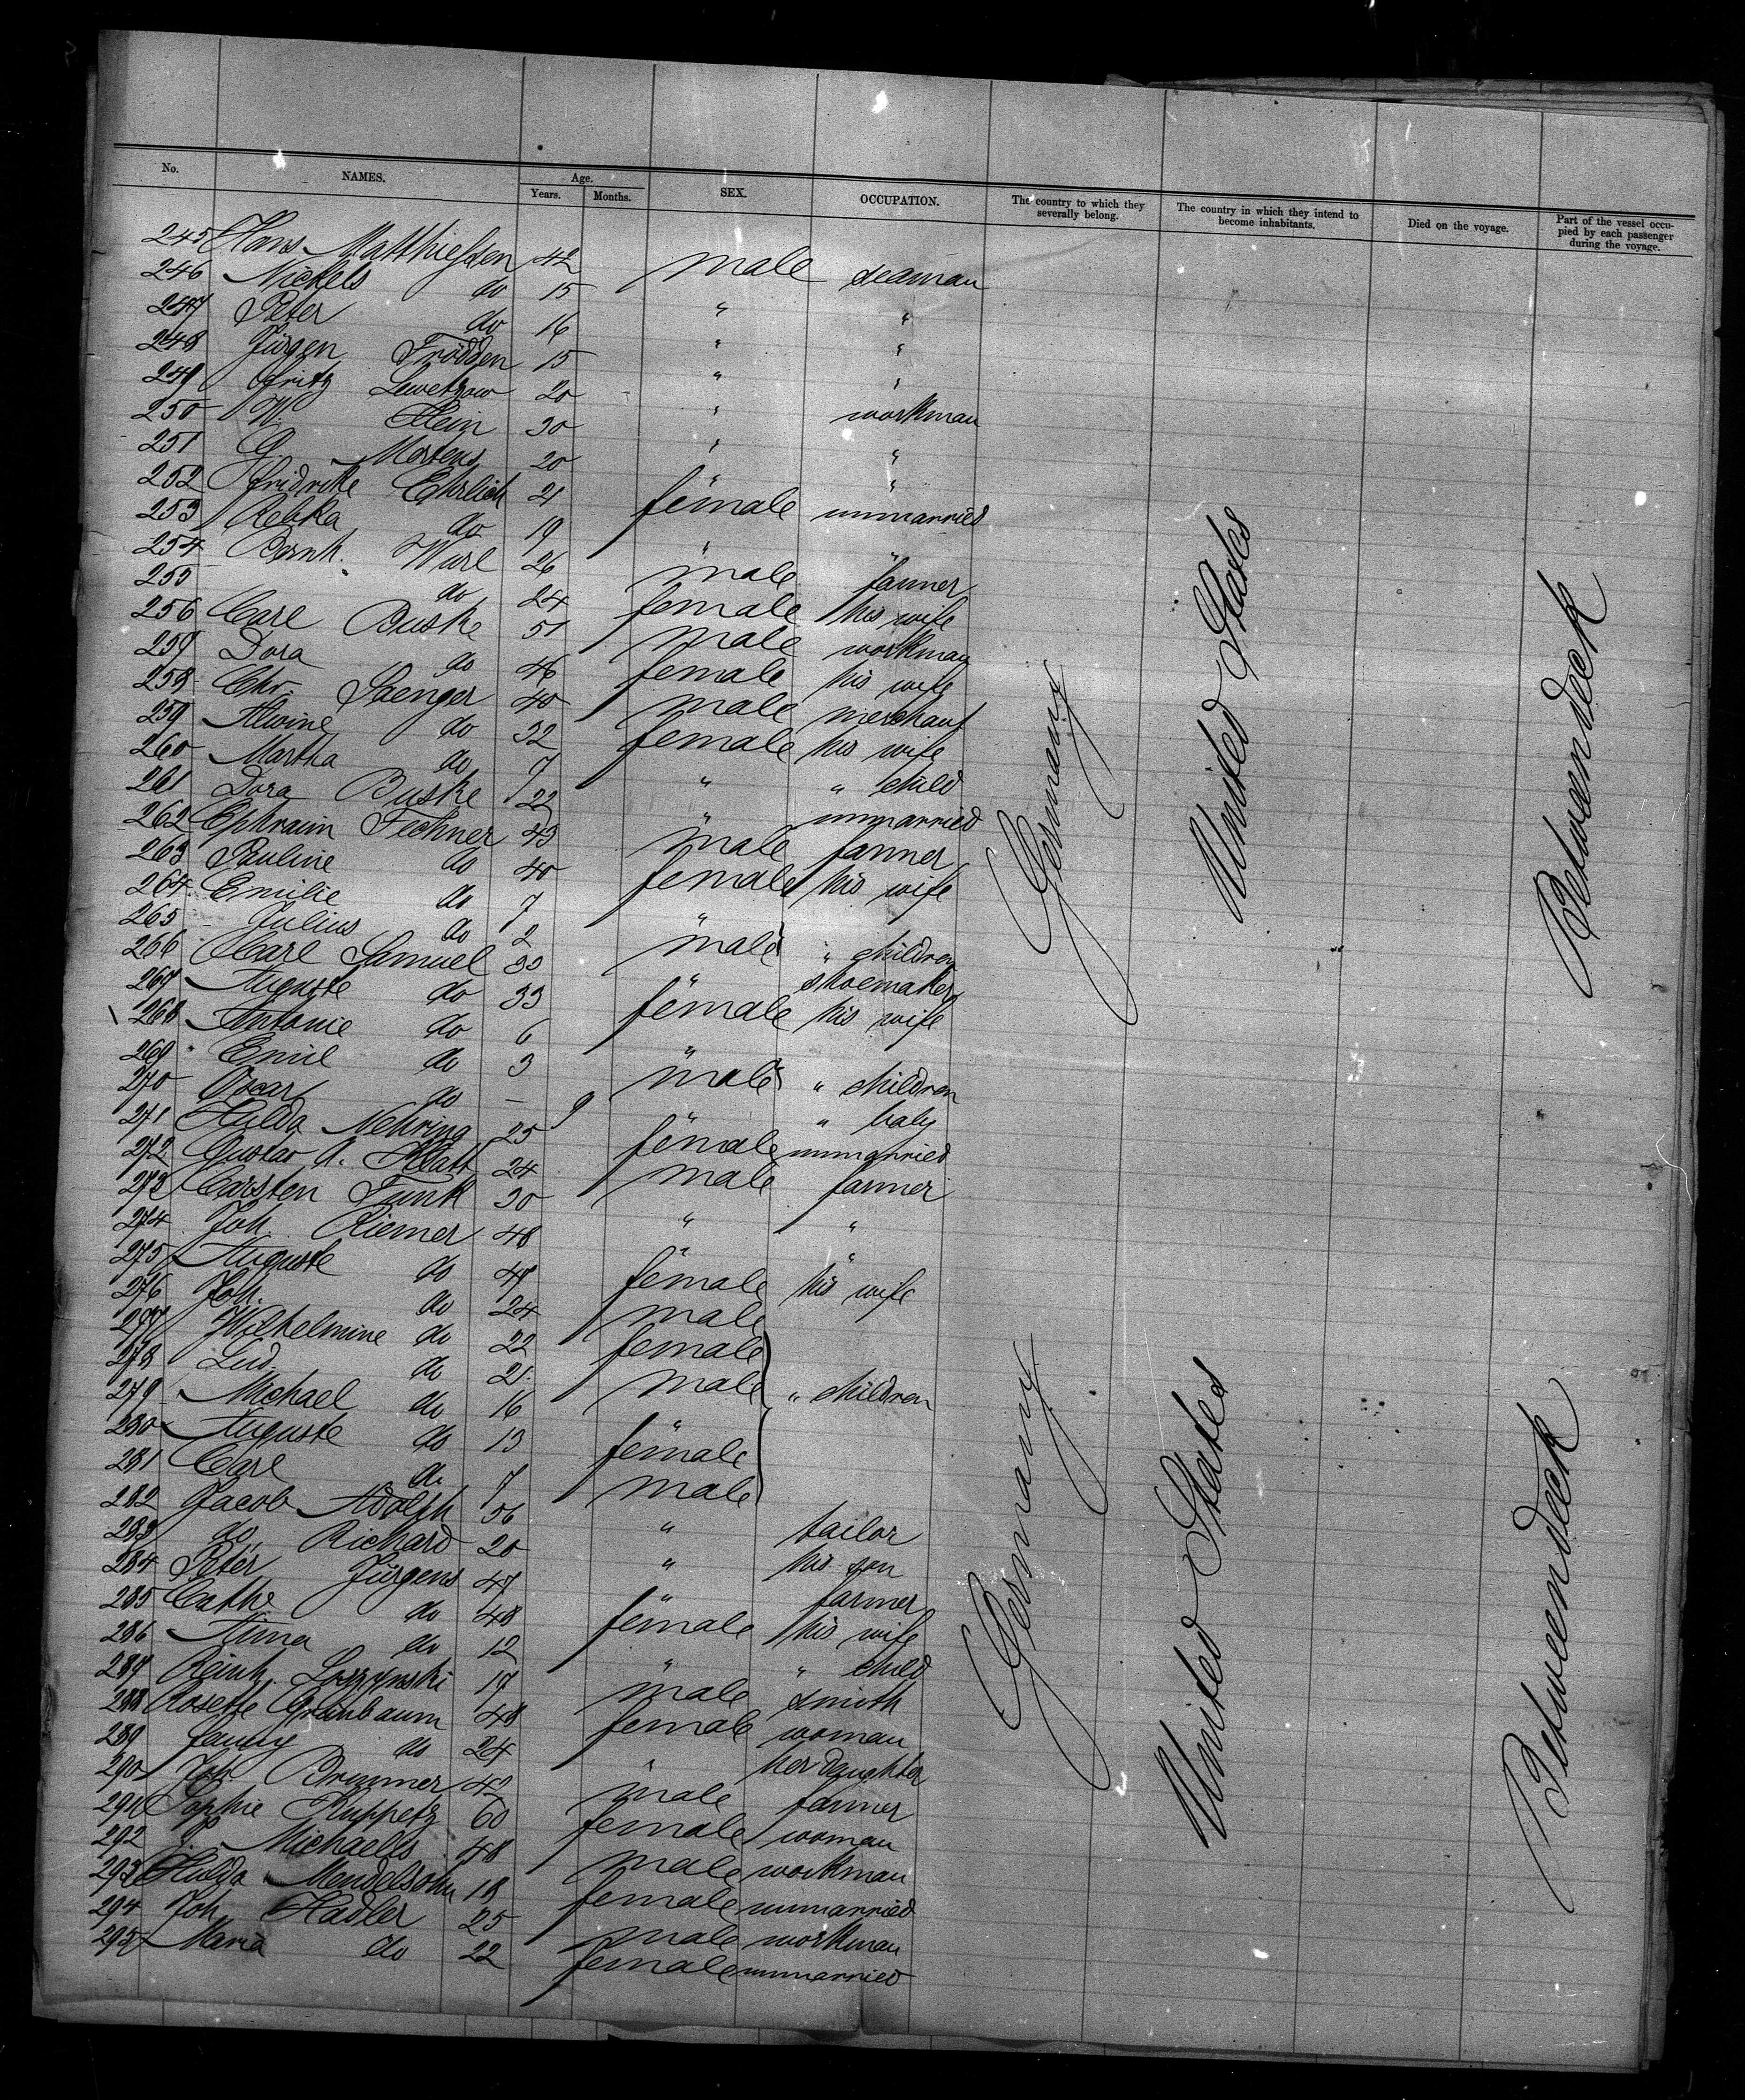 No. NAMES. Age. Years. Months. SEX. OCCUPATION. The country to which they severally belong. The country in which they intend to become inhabitants. Died on the voyage. Part of the vessel occupied by each passenger during the voyage.
245 Hans Matthiessen 42 male seaman
246 Nickels do 15 " "
247 Peter do 16 " "
248 Jürgen Frödden 15 " "
249 Fritz Lewetzow 20 " workman
250 W. Klein 30 " "
251 G. Martens 20 " "
252 Fridrike Ehrlich 21 female unmarried
253 Rebka do 19 " "
254 Bernh. Wurl 26 male farmer
255 do 24 female his wife
256 Carl Buske 51 male workman
257 Dora do 46 female his wife
258 Chr. Saenger 40 male merchant
259 Alwine do 32 female his wife
260 Martha do 7 " " child
261 Dora Buske 22 " unmarried
262 Ephraim Fechner 43 male farmer
263 Pauline do 40 female his wife
264 Emilie do 7 "
265 Julius do 2 male " children
266 Carl Samuel 33 " shoemaker
267 Auguste do 33 female his wife
268 Antonie do 6 "
269 Emil do 3 male " children
270 Oscar do — 9 " " baby
271 Hulda Nehring 25 female unmarried
272 Gustav A. Klatt 24 male farmer
273 Carsten Funk 30 " "
274 Joh. Riemer 48 " "
275 Auguste do 47 female his wife
276 Joh. do 24 male
277 Wilhelmine do 22 female
278 Lud. do 21 male " children
279 Michael do 16 "
280 Auguste do 13 female
281 Carl do 7 male
282 Jacob Adolph 56 " tailor
283 do Richard 20 " his son
284 Peter Jürgens 47 " farmer
285 Cathe do 48 female his wife
286 Anna do 12 " " child
287 Reinh. 17 male smith
288 Rosette Grünbaum 48 female woman
289 Fanny do 24 " her daughter
290 Joh. Brunner 42 male farmer
291 Sophie Kuppetz 60 female woman
292 Michaelis 48 male workman
293 Hulda Mendelsohn 18 female unmarried
294 Joh. Hadler 25 male workman
295 Maria do 22 female unmarried
Germany United States Betweendeck
Germany United States Betweendeck